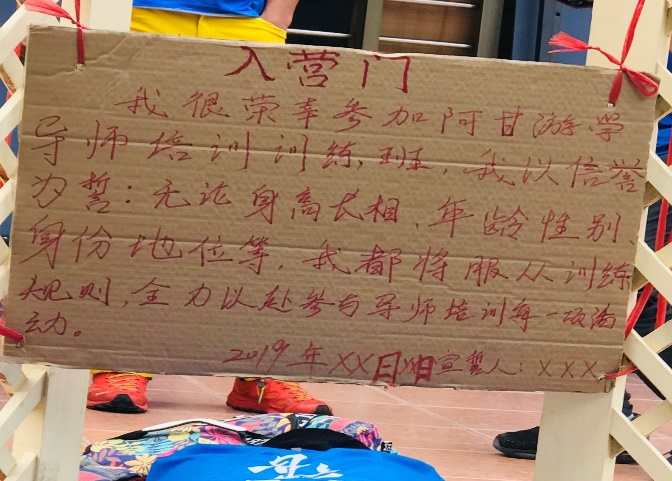 入营门
我很荣幸参加阿甘游学
导师培训训练班，我以信誉
为誓：无论身高长相、年龄性别、
身份地位等，我都将服从训练
规则，全力以赴参与导师培训每一项活
动。
2019年XX日X日宣誓人：XXX